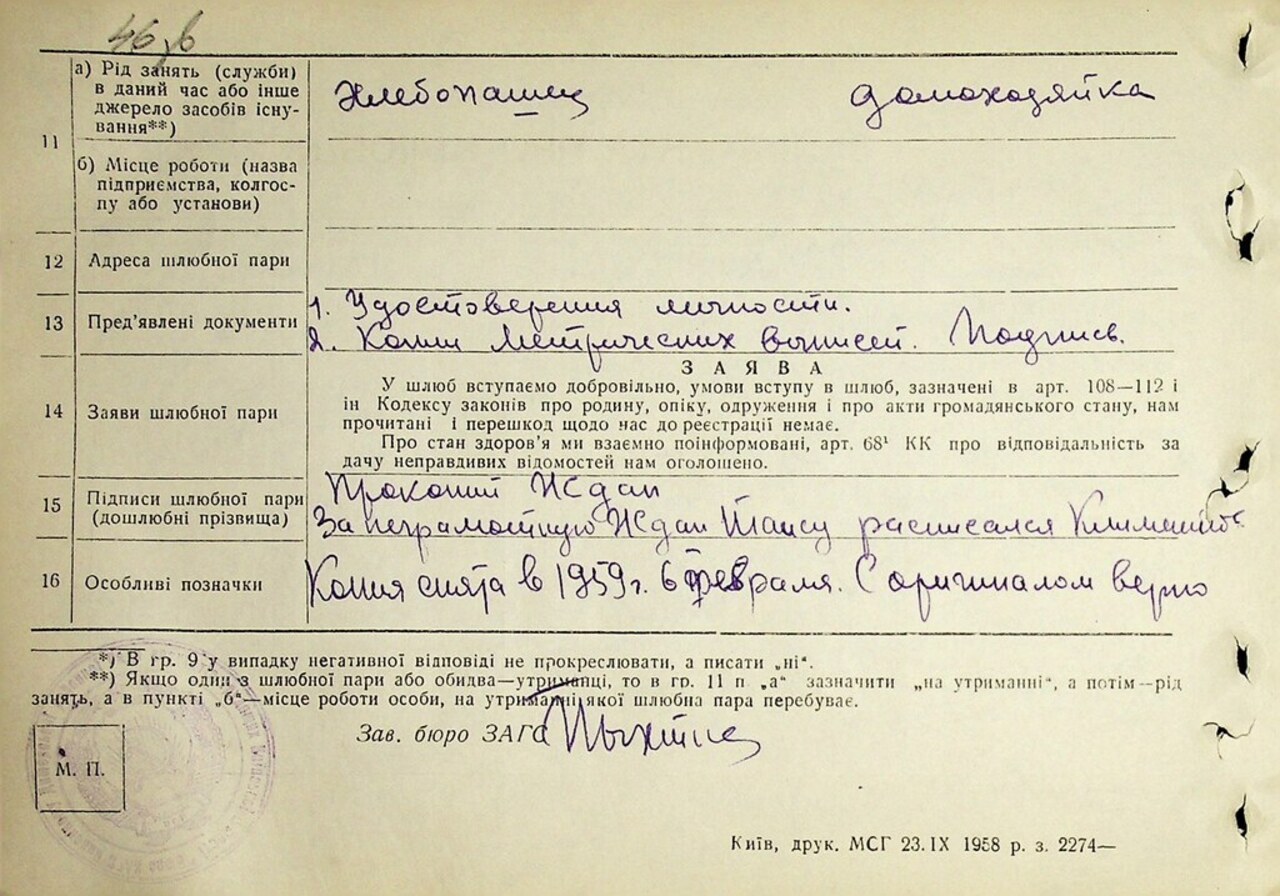 46 зв
11
а) Рід занять (служби)
в даний час або інше
джерело засобів існу-
вання**)
Хлебопашец домохозяйка
б) Місце роботи (назва
підприємства, колгос-
пу або установи)
12 Адреса шлюбної пари
13 Пред'явлені документи
1. Удостоверения личности.
2. Копии метрических выписей. Подпись.
14 Заяви шлюбної пари
ЗАЯВА
У шлюб вступаємо добровільно, умови вступу в шлюб, зазначені в арт. 108—112 і
ін Кодексу законів про родину, опіку, одруження і про акти громадянського стану, нам
прочитані і перешкод щодо нас до реєстрації немає.
Про стан здоров'я ми взаємно поінформовані, арт. 68¹ КК про відповідальність за
дачу неправдивих відомостей нам оголошено.
15 Підписи шлюбної пари
(дошлюбні прізвища)
Прокопий Ждан
За неграмотную Ждан Таису расписался
16 Особливі позначки
Копия снята в 1959 г. 6 февраля. С оригиналом верно
*) В гр. 9 у випадку негативної відповіді не прокреслювати, а писати „ні“.
**) Якщо один з шлюбної пари або обидва—утриманці, то в гр. 11 п „а“ зазначити „на утриманні“, а потім—рід
занять, а в пункті „б“—місце роботи особи, на утриманні якої шлюбна пара перебуває.
Зав. бюро ЗАГС
М. П.
Київ, друк. МСГ 23.IX 1958 р. з. 2274—